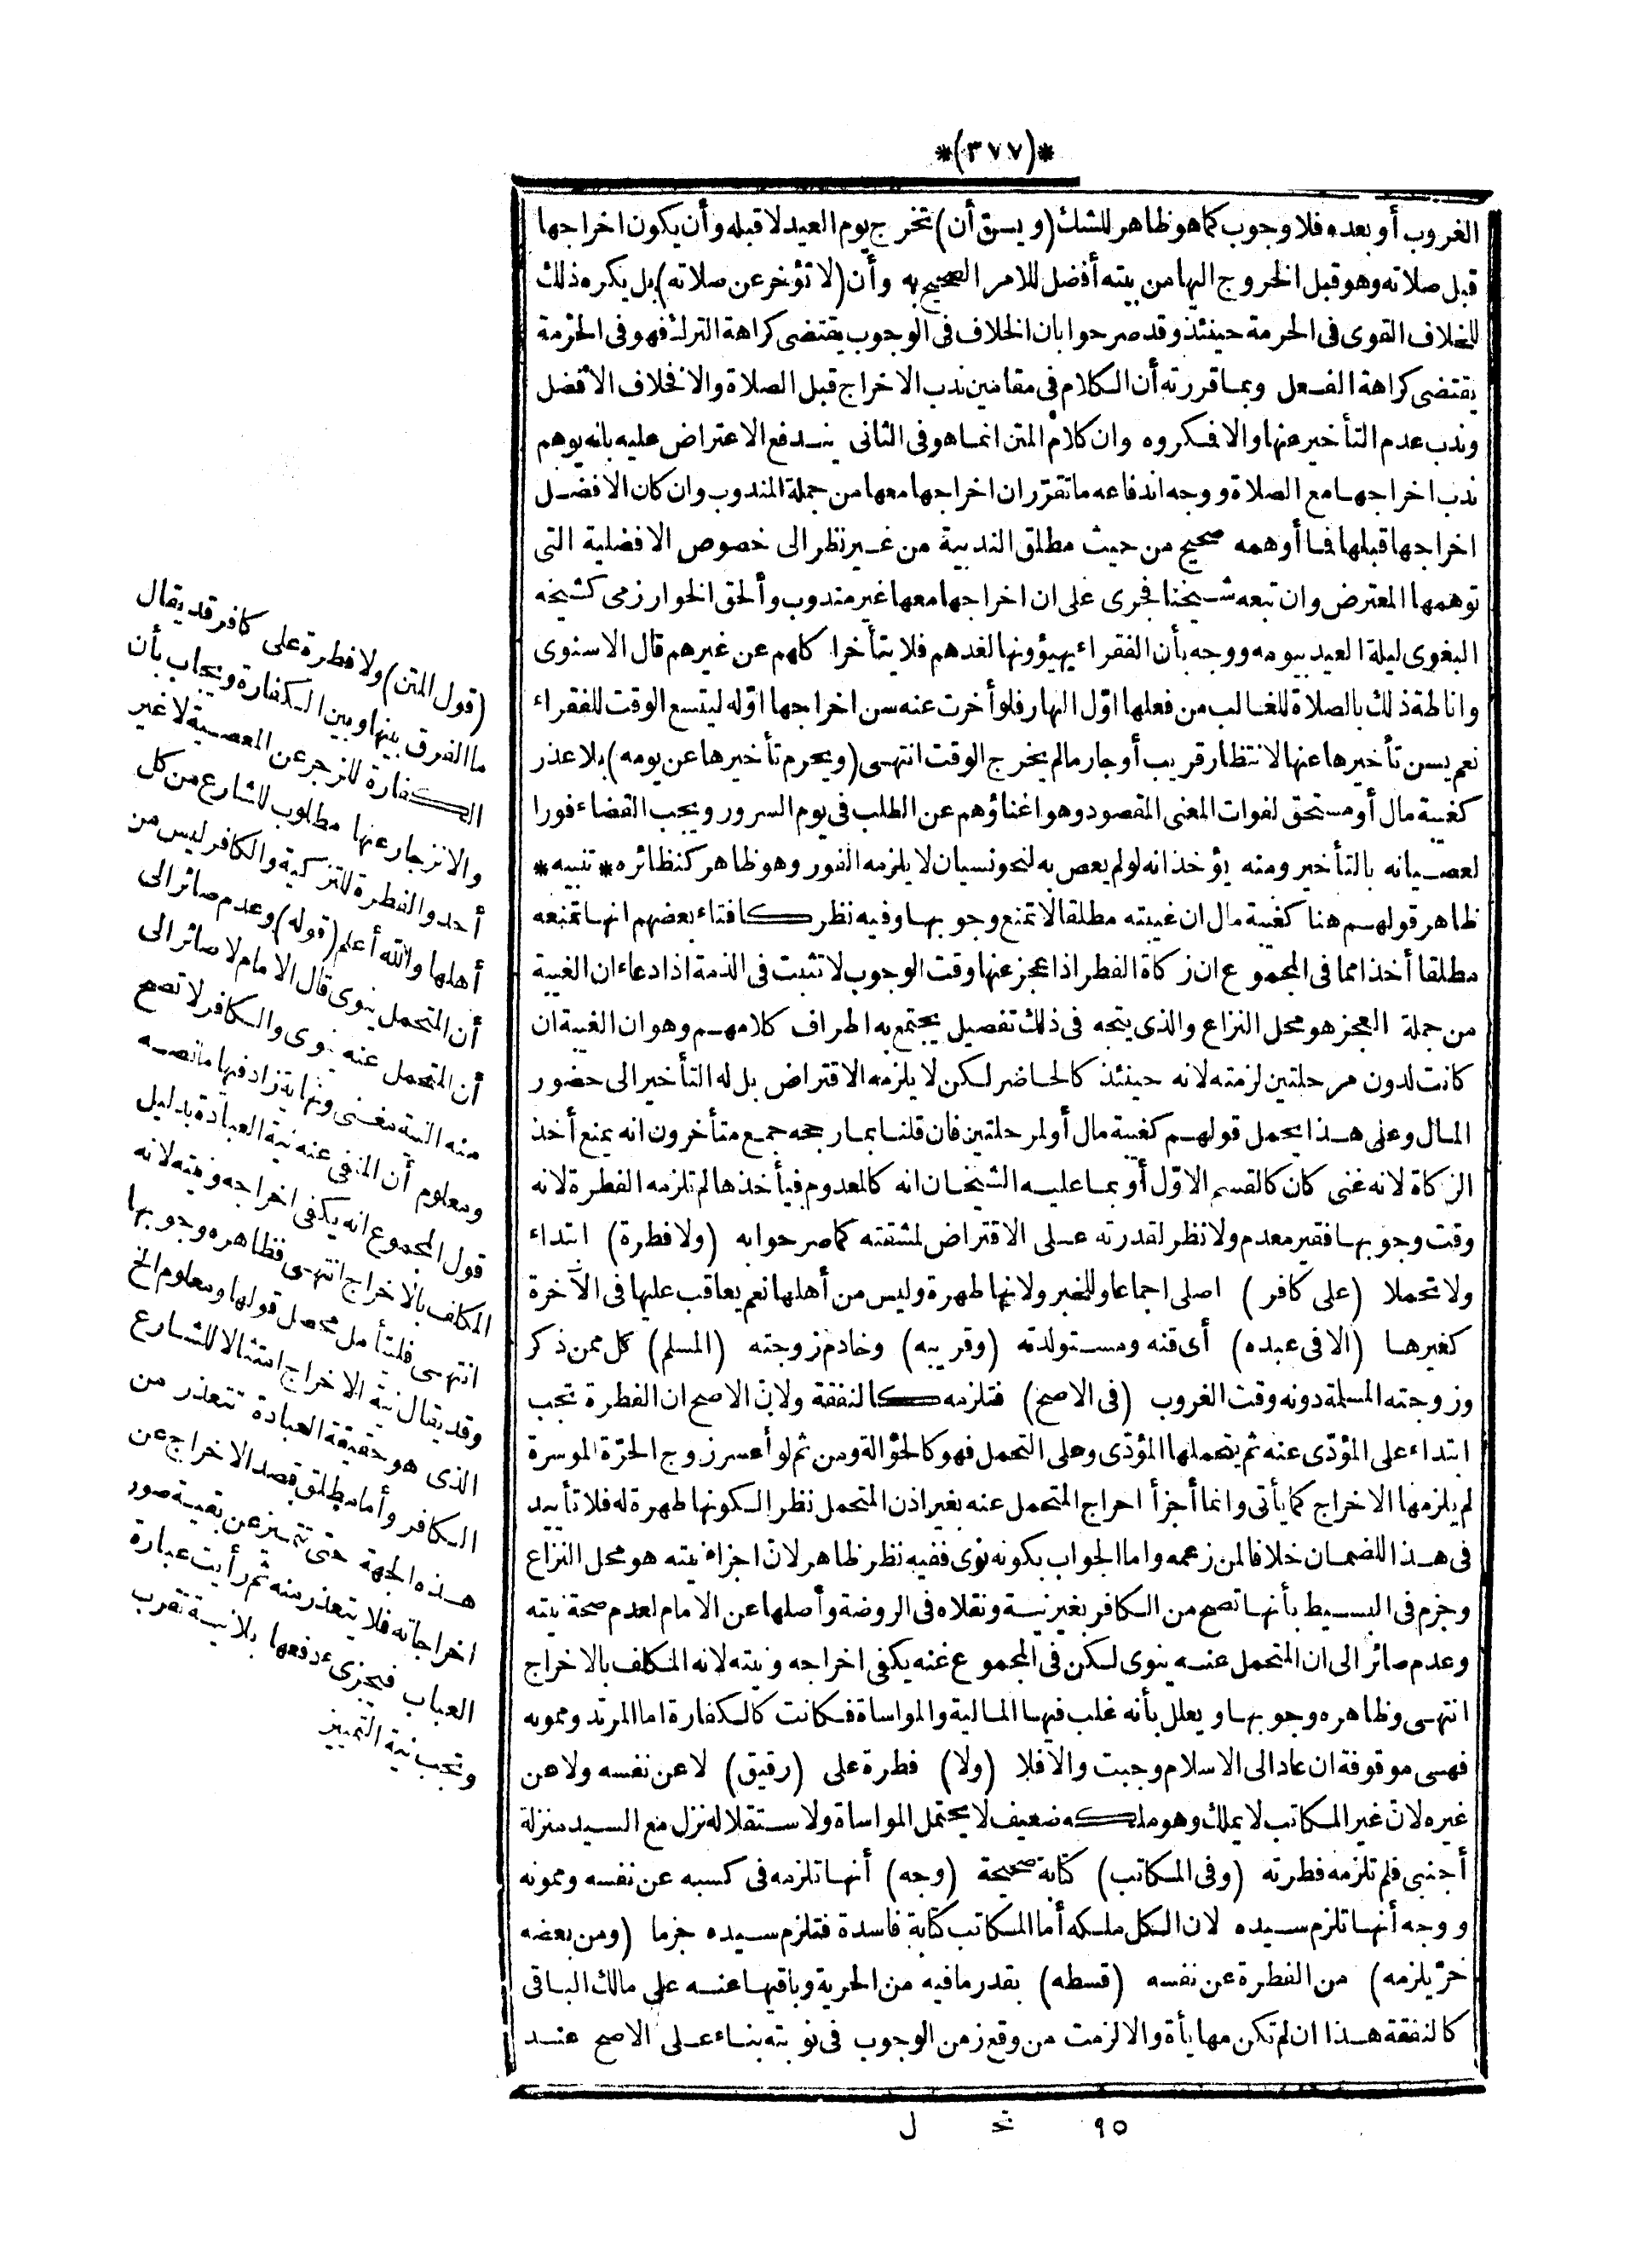 *(٣٧٧)*
الغروب أو بعده فلا وجوب كما هو ظاهر للشك (ويسن أن) تخرج يوم العيد لا قبله وأن يكون اخراجها
قبل صلاته وهو قبل الخروج اليها من بيته أفضل للامر الصحيح به وأن (لا تؤخر عن صلاته) بل يكره ذلك
للخلاف القوى فى الحرمة حينئذ وقد صرحوا بان الخلاف فى الوجوب يقتضى كراهة الترك فهو فى الحرمة
يقتضى كراهة الفعل وبما قررته أن الكلام فى مقامين ندب الاخراج قبل الصلاة والا فخلاف الأفضل
وندب عدم التأخير عنها والا فمكروه وان كلام المتن انما هو فى الثانى يندفع الاعتراض عليه بانه يوهم
ندب اخراجها مع الصلاة ووجه اندفاعه ما تقرّر ان اخراجها معها من جملة المندوب وان كان الافضل
اخراجها قبلها فما أوهمه صحيح من حيث مطلق الندبية من غير نظر الى خصوص الافضلية التى
توهمها المعترض وان تبعه شيخنا فجرى على ان اخراجها معها غير مندوب وألحق الخوارزمى كشيخه
البغوى ليلة العيد بيومه ووجه بأن الفقراء يهيؤونها لغدهم فلا يتأخر أكلهم عن غيرهم قال الاسنوى
واناطة ذلك بالصلاة للغالب من فعلها اوّل النهار فلو أخرت عنه سن اخراجها اوّله ليتسع الوقت للفقراء
نعم يسن تأخيرها عنها لانتظار قريب أو جار ما لم يخرج الوقت انتهى (ويحرم تأخيرها عن يومه) بلا عذر
كغيبة مال أو مستحق لفوات المعنى المقصود وهو اغناؤهم عن الطلب فى يوم السرور ويجب القضاء فورا
لعصيانه بالتأخير ومنه يؤخذ انه لو لم يعص به لنحو نسيان لا يلزمه الفور وهو ظاهر كنظائره * تنبيه *
ظاهر قولهم هنا كغيبة مال ان غيبته مطلقا لا تمنع وجوبها وفيه نظر كافتاء بعضهم انها تمنعه
مطلقا أخذا مما فى المجموع ان زكاة الفطر اذا عجز عنها وقت الوجوب لا تثبت فى الذمة اذ ادعاء ان الغيبة
من جملة العجز هو محل النزاع والذى يتجه فى ذلك تفصيل يجتمع به اطراف كلامهم وهو ان الغيبة ان
كانت لدون مرحلتين لزمته لانه حينئذ كالحاضر لكن لا يلزمه الاقتراض بل له التأخير الى حضور
المال وعلى هذا يحمل قولهم كغيبة مال أو لمرحلتين فان قلنا بما رجحه جمع متأخرون انه يمنع أخذ
الزكاة لانه غنى كان كالقسم الاوّل أو بما عليه الشيخان انه كالمعدوم فيأخذها لم تلزمه الفطرة لانه
وقت وجوبها فقير معدم ولا نظر لقدرته على الاقتراض لمشقته كما صرحوا به (ولا فطرة) ابتداء
ولا تحملا (على كافر) اصلى اجماعا وللخبر ولانها طهرة وليس من أهلها نعم يعاقب عليها فى الآخرة
كغيرها (الا فى عبده) أى قنه ومستولدته (وقريبه) وخادم زوجته (المسلم) كل ممن ذكر
وزوجته المسلمة دونه وقت الغروب (فى الاصح) فتلزمه كالنفقة ولانّ الاصح ان الفطرة تجب
ابتداء على المؤدّى عنه ثم يتحملها المؤدّى وعلى التحمل فهو كالحوالة ومن ثم لو أعسر زوج الحرّة الموسرة
لم يلزمها الاخراج كما يأتى وانما أجزأ اخراج المتحمل عنه بغير اذن المتحمل نظرا لكونها طهرة له فلا تأييد
فى هذا للضمان خلافا لمن زعمه واما الجواب بكونه نوى ففيه نظر ظاهر لانّ اجزاء نيته هو محل النزاع
وجزم فى البسيط بأنها تصح من الكافر بغير نية ونقلاه فى الروضة وأصلها عن الامام لعدم صحة نيته
وعدم صائر الى ان المتحمل عنه ينوى لكن فى المجموع عنه يكفى اخراجه ونيته لانه المكلف بالاخراج
انتهى وظاهره وجوبها ويعلل بأنه غلب فيها المالية والمواساة فكانت كالكفارة اما المرتد وممونه
فهى موقوفة ان عاد الى الاسلام وجبت والا فلا (ولا) فطرة على (رقيق) لا عن نفسه ولا عن
غيره لانّ غير المكاتب لا يملك وهو ملكه ضعيف لا يحتمل المواساة ولاستقلاله نزل مع السيد منزلة
أجنبى فلم تلزمه فطرته (وفى المكاتب) كتابة صحيحة (وجه) أنها تلزمه فى كسبه عن نفسه وممونه
ووجه أنها تلزم سيده لان الكل ملكه أما المكاتب كتابة فاسدة فتلزم سيده جزما (ومن بعضه
حرّ يلزمه) من الفطرة عن نفسه (قسطه) بقدر ما فيه من الحرية وباقيها عنه على مالك الباقى
كالنفقة هذا ان لم تكن مهايأة والا لزمت من وقع زمن الوجوب فى نوبته بناء على الاصح عند
٩٥ تح ل
(قول المتن) ولا فطرة على كافر قد يقال
ما الفرق بينها وبين الكفارة ويجاب بأن
الكفارة للزجر عن المعصية لا غير
والانزجار عنها مطلوب للشارع من كل
أحد والفطرة للتزكية والكافر ليس من
أهلها والله أعلم (قوله) وعدم صائر الى
أن المتحمل ينوى قال الامام لا صائر الى
أن المتحمل عنه ينوى والكافر لا تصح
منه النية مغنى ونهاية زاد فيها ما نصه
ومعلوم أن المنفى عنه نية العبادة بدليل
قول المجموع انه يكفى اخراجه ونيته لانه
المكلف بالاخراج انتهى فظاهره وجوبها
انتهى فليتأمل محصل قولها ومعلوم الخ
وقد يقال نية الاخراج امتثالا للشارع
الذى هو حقيقة العبادة تتعذر من
الكافر وأما مطلق قصد الاخراج عن
هذه الجهة حتى تتميز عن بقية صور
اخراجاته فلا يتعذر منه ثم رأيت عبارة
العباب فيجزىء دفعها بلا نية تقرب
وتجب نية التمييز